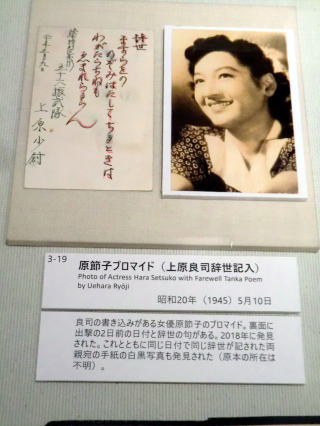 辞世
わがたらちねも
五十六振武隊
上原少尉
3-19
原節子ブロマイド（上原良司辞世記入）
Photo of Actress Hara Setsuko with Farewell Tanka Poem
by Uehara Ryōji
昭和20年（1945）5月10日
良司の書き込みがある女優原節子のブロマイド。裏面に
出撃の2日前の日付と辞世の句がある。2018年に発見
された。これとともに同じ日付で同じ辞世が記された両
親宛の手紙の白黒写真も発見された（原本の所在は
不明）。